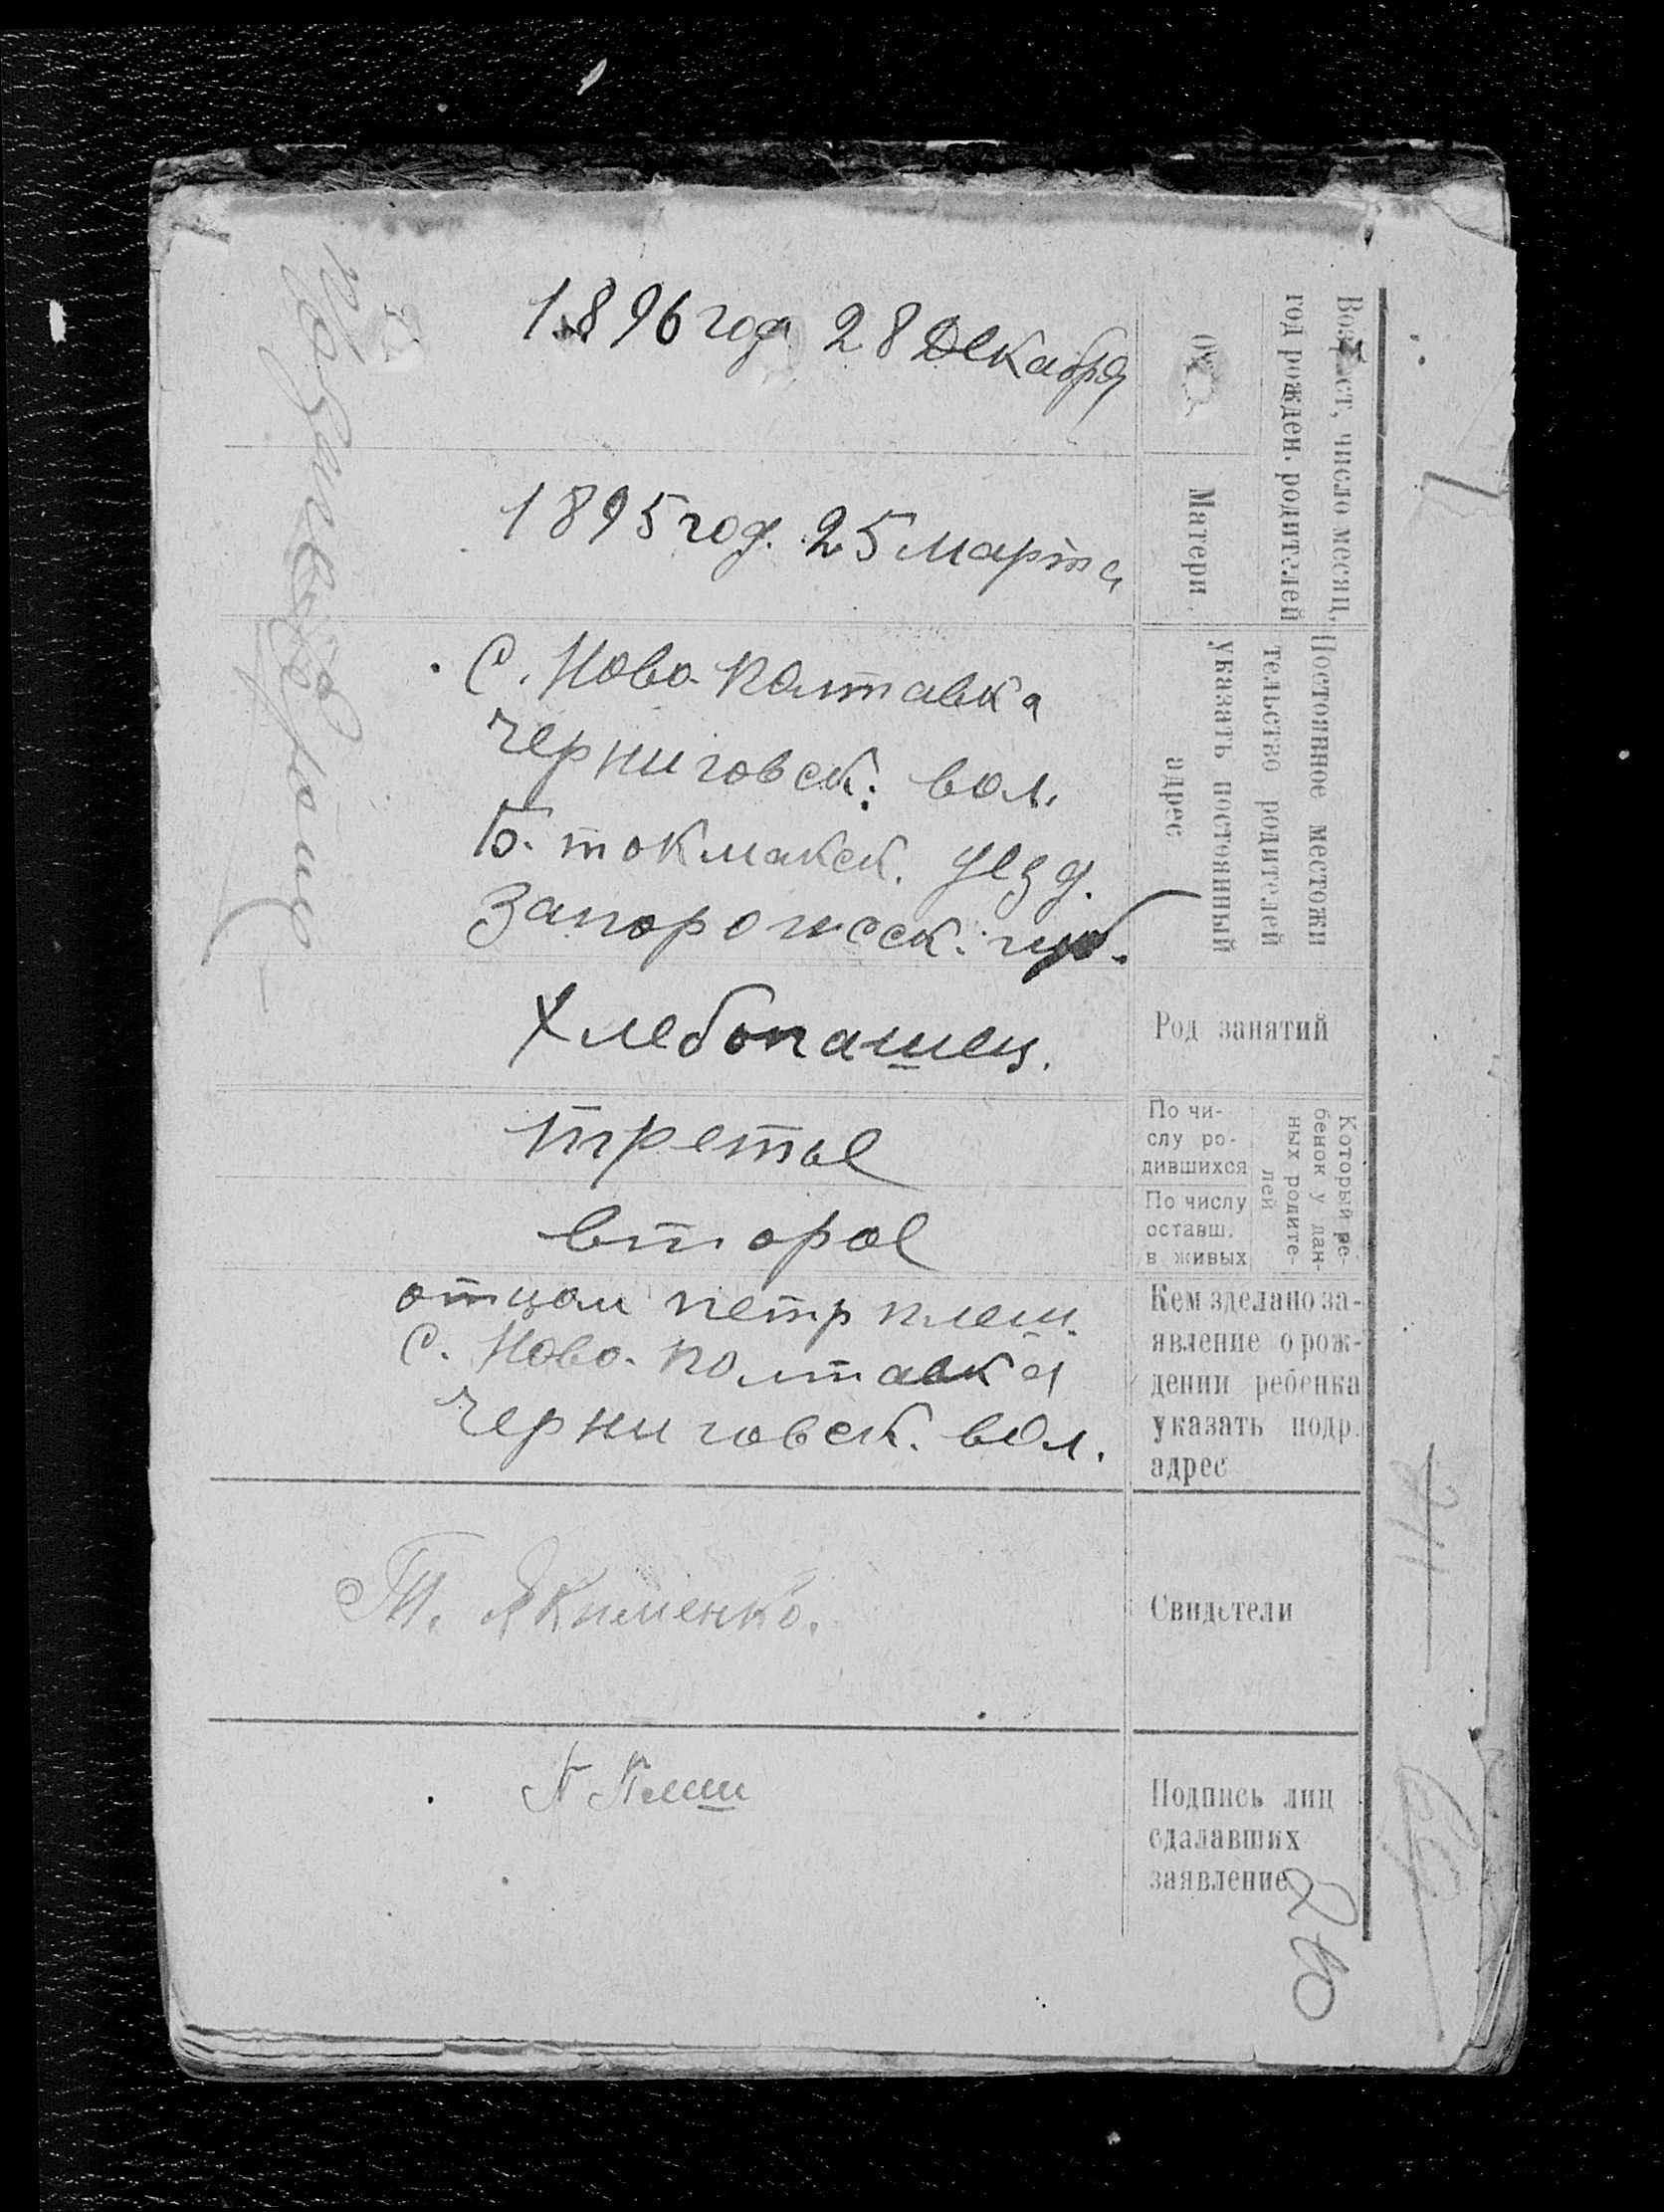 год рожден. родителей
Матери
1896 год 28 декабря
1895 год. 25 марта
Постоянное местожи
тельство родителей
указать постоянный
адрес
С. Ново-Полтавка
Черниговск. вол.
Б. токмакск. уезд.
Запорожсск. губ.
Род занятий
Хлебопашец.
Который ре-
бенок у дан-
ных родите-
лей
По чи-
слу ро-
дившихся
третье
По числу
оставш.
в живых
второе
Кем зделано за-
явление о рож-
дении ребенка
указать подр.
адрес
отцом петр плеш.
С. Ново-Полтавка
Черниговск. вол.
Свидетели
Т. Якименко.
Подпись лиц
сдалавших
заявление
260